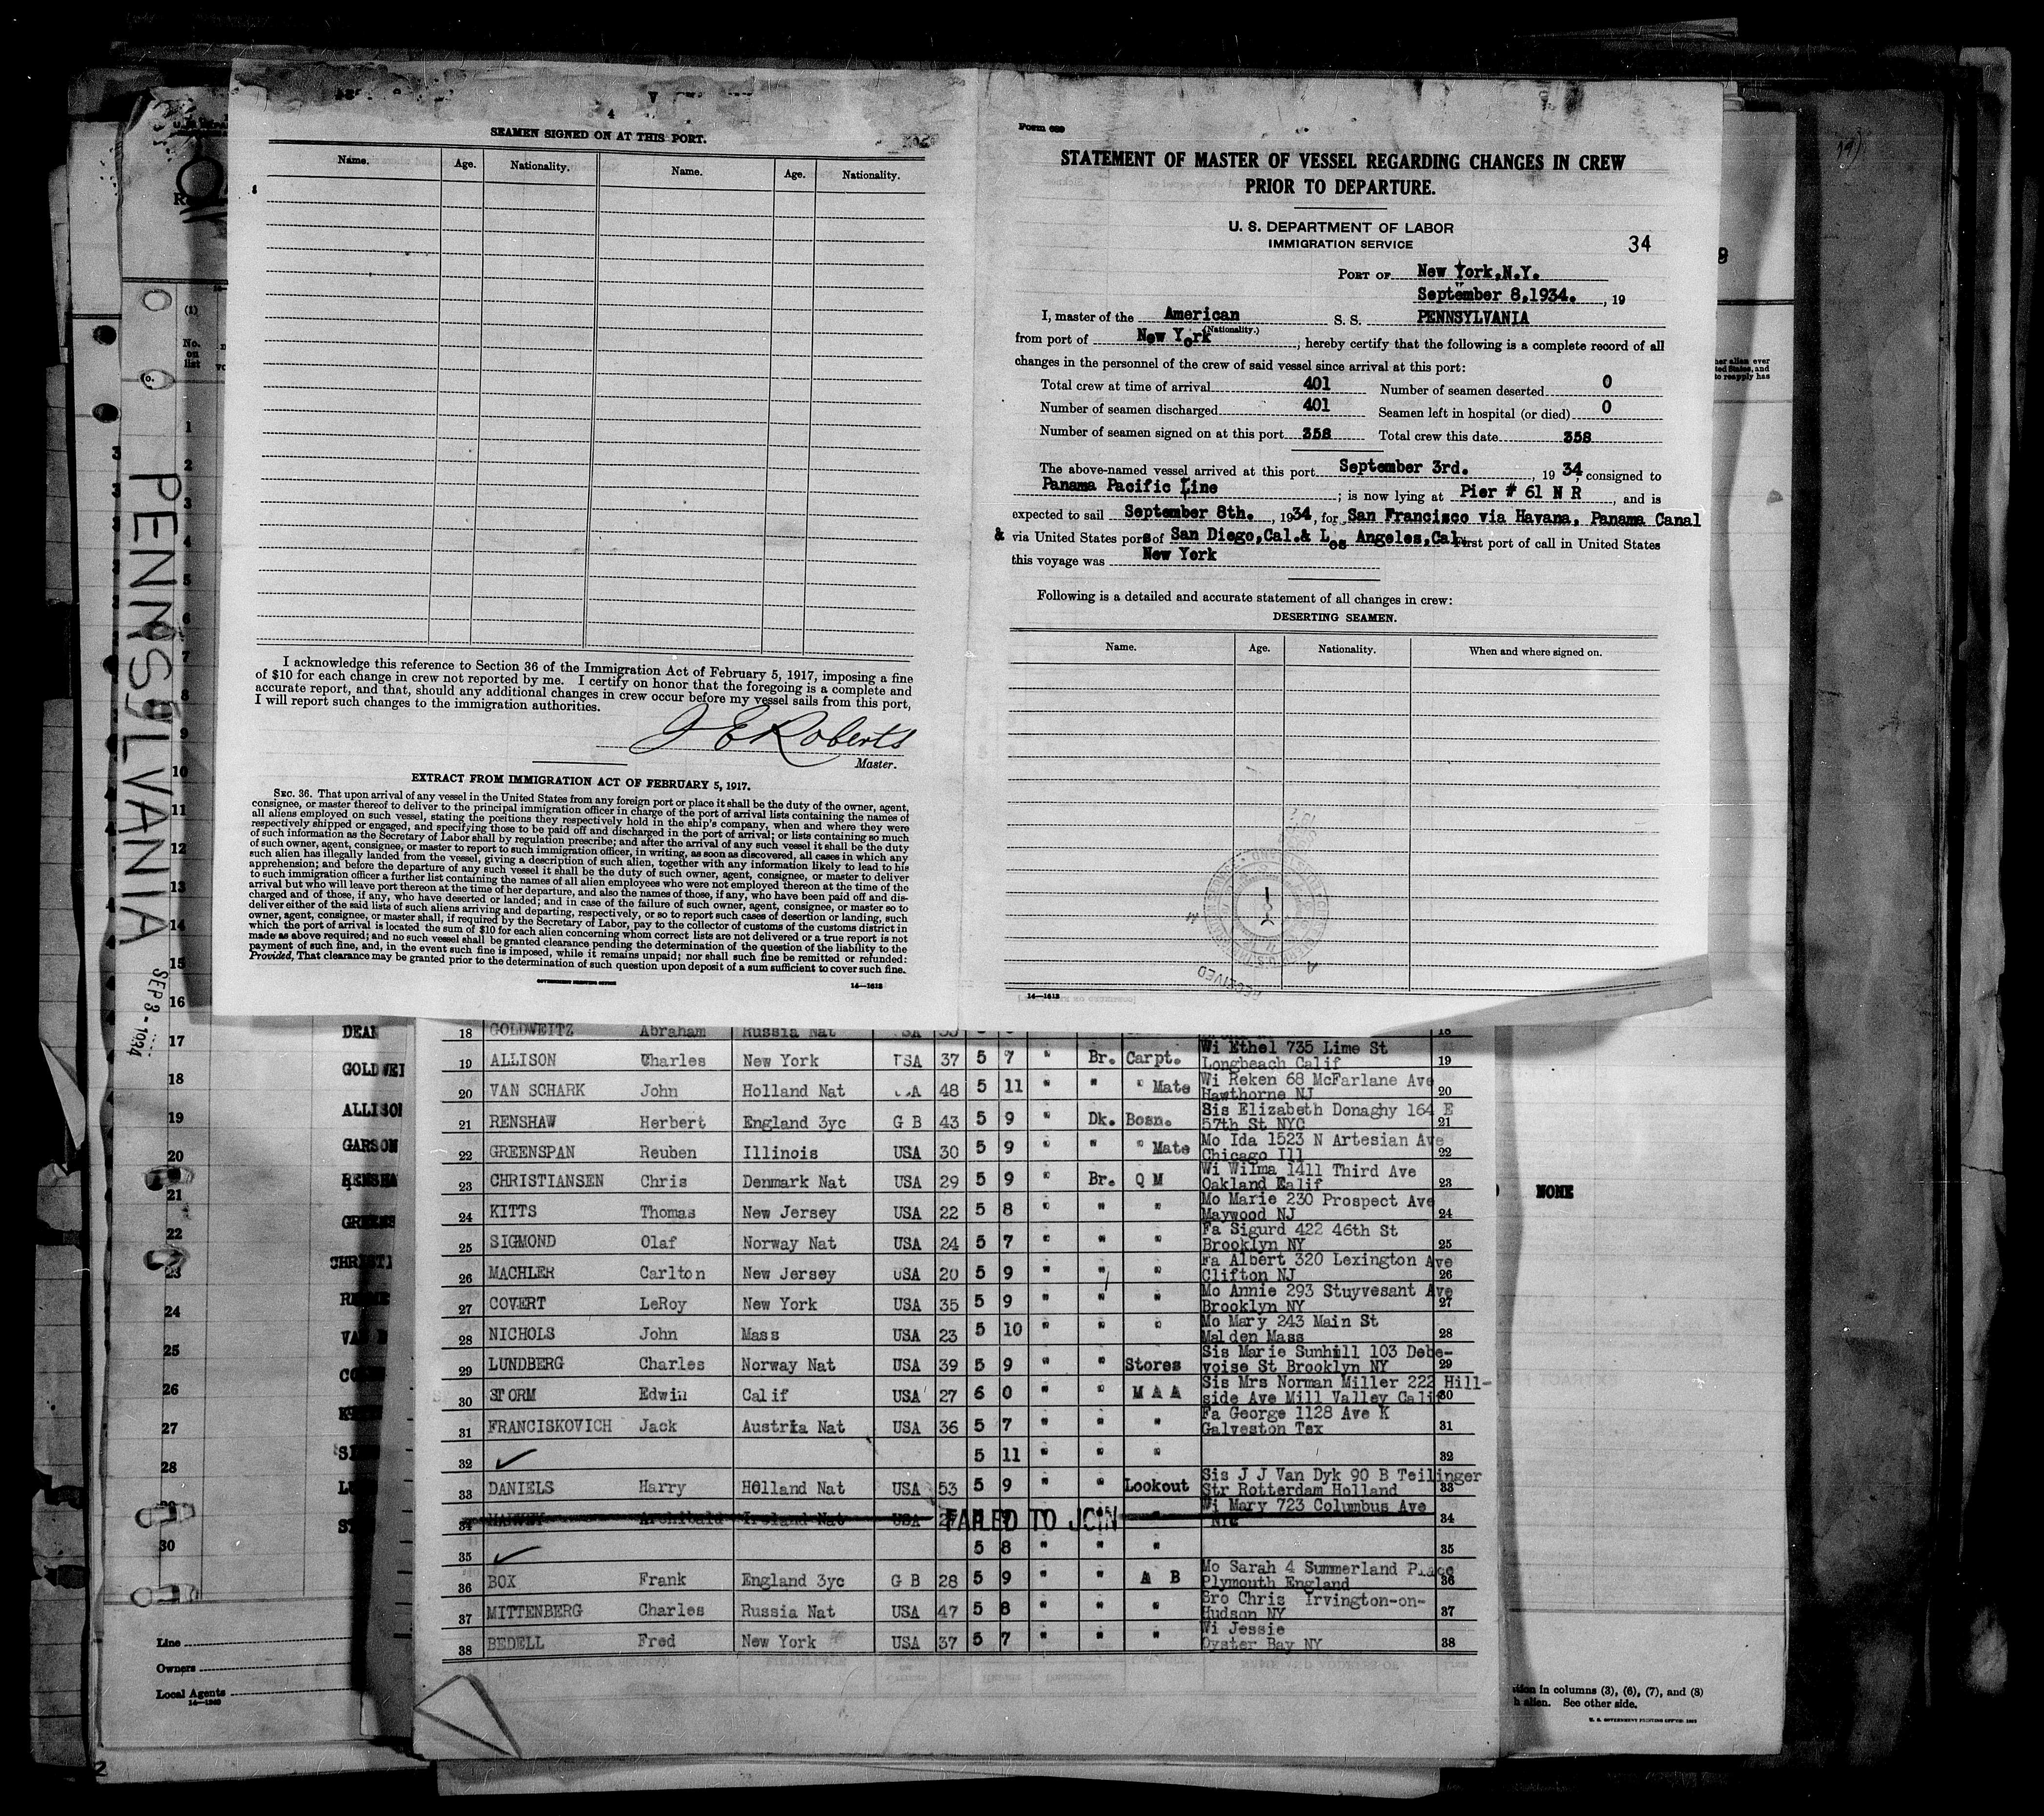 4
SEAMEN SIGNED ON AT THIS PORT.
Name. Age. Nationality. Name. Age. Nationality.
I acknowledge this reference to Section 36 of the Immigration Act of February 5, 1917, imposing a fine
of $10 for each change in crew not reported by me. I certify on honor that the foregoing is a complete and
accurate report, and that, should any additional changes in crew occur before my vessel sails from this port,
I will report such changes to the immigration authorities.
J E Roberts
Master.
EXTRACT FROM IMMIGRATION ACT OF FEBRUARY 5, 1917.
SEC. 36. That upon arrival of any vessel in the United States from any foreign port or place it shall be the duty of the owner, agent,
consignee, or master thereof to deliver to the principal immigration officer in charge of the port of arrival lists containing the names of
all aliens employed on such vessel, stating the positions they respectively hold in the ship's company, when and where they were
respectively shipped or engaged, and specifying those to be paid off and discharged in the port of arrival; or lists containing so much
of such information as the Secretary of Labor shall by regulation prescribe; and after the arrival of any such vessel it shall be the duty
of such owner, agent, consignee, or master to report to such immigration officer, in writing, as soon as discovered, all cases in which any
such alien has illegally landed from the vessel, giving a description of such alien, together with any information likely to lead to his
apprehension; and before the departure of any such vessel it shall be the duty of such owner, agent, consignee, or master to deliver
to such immigration officer a further list containing the names of all alien employees who were not employed thereon at the time of the
arrival but who will leave port thereon at the time of her departure, and also the names of those, if any, who have been paid off and dis-
charged and of those, if any, who have deserted or landed; and in case of the failure of such owner, agent, consignee, or master so to
deliver either of the said lists of such aliens arriving and departing, respectively, or so to report such cases of desertion or landing, such
owner, agent, consignee, or master shall, if required by the Secretary of Labor, pay to the collector of customs of the customs district in
which the port of arrival is located the sum of $10 for each alien concerning whom correct lists are not delivered or a true report is not
made as above required; and no such vessel shall be granted clearance pending the determination of the question of the liability to the
payment of such fine, and, in the event such fine is imposed, while it remains unpaid; nor shall such fine be remitted or refunded:
Provided, That clearance may be granted prior to the determination of such question upon deposit of a sum sufficient to cover such fine.
GOVERNMENT PRINTING OFFICE 14—1613
Form 689
STATEMENT OF MASTER OF VESSEL REGARDING CHANGES IN CREW
PRIOR TO DEPARTURE.
U. S. DEPARTMENT OF LABOR
IMMIGRATION SERVICE
34
PORT OF New York,N.Y.
September 8,1934. , 19
I, master of the American S. S. PENNSYLVANIA
(Nationality.)
from port of New York , hereby certify that the following is a complete record of all
changes in the personnel of the crew of said vessel since arrival at this port:
Total crew at time of arrival 401 Number of seamen deserted 0
Number of seamen discharged 401 Seamen left in hospital (or died) 0
Number of seamen signed on at this port 358 Total crew this date 358
The above-named vessel arrived at this port September 3rd. , 1934, consigned to
Panama Pacific Line ; is now lying at Pier # 61 N R , and is
expected to sail September 8th. , 1934, for San Francisco via Havana, Panama Canal
& via United States ports of San Diego,Cal.& Los Angeles,Cal. First port of call in United States
this voyage was New York
Following is a detailed and accurate statement of all changes in crew:
DESERTING SEAMEN.
Name. Age. Nationality. When and where signed on.
RECEIVED
14—1613
18 GOLDWEITZ Abraham Russia Nat 18
19 ALLISON Charles New York USA 37 5 7 " Br. Carpt. Wi Ethel 735 Lime St 19
Longbeach Calif
20 VAN SCHARK John Holland Nat 48 5 11 " " " Mate Wi Reken 68 McFarlane Ave 20
Hawthorne NJ
21 RENSHAW Herbert England 3yc G B 43 5 9 " Dk. Bosn. Sis Elizabeth Donaghy 164 E 21
57th St NYC
22 GREENSPAN Reuben Illinois USA 30 5 9 " " " Mate Mo Ida 1523 N Artesian Ave 22
Chicago Ill
23 CHRISTIANSEN Chris Denmark Nat USA 29 5 9 " Br. Q M Wi Wilma 1411 Third Ave 23
Oakland Ealif
24 KITTS Thomas New Jersey USA 22 5 8 " " " Mo Marie 230 Prospect Ave 24
Maywood NJ
25 SIGMOND Olaf Norway Nat USA 24 5 7 " " " Fa Sigurd 422 46th St 25
Brooklyn NY
26 MACHLER Carlton New Jersey USA 20 5 9 " " " Fa Albert 320 Lexington Ave 26
Clifton NJ
27 COVERT LeRoy New York USA 35 5 9 " " " Mo Annie 293 Stuyvesant Ave 27
Brooklyn NY
28 NICHOLS John Mass USA 23 5 10 " " " Mo Mary 243 Main St 28
Malden Mass
29 LUNDBERG Charles Norway Nat USA 39 5 9 " " Stores Sis Marie Sunhill 103 Debe- 29
voise St Brooklyn NY
30 STORM Edwin Calif USA 27 6 0 " " M A A Sis Mrs Norman Miller 222 Hill- 30
side Ave Mill Valley Calif
31 FRANCISKOVICH Jack Austria Nat USA 36 5 7 " " " Fa George 1128 Ave K 31
Galveston Tex
32 ✓ 5 11 " " " 32
33 DANIELS Harry Holland Nat USA 53 5 9 " " Lookout Sis J J Van Dyk 90 B Teilinger 33
Str Rotterdam Holland
34 Archibald Ireland Nat USA FAILED TO JOIN Wi Mary 723 Columbus Ave 34
NYC
35 ✓ 5 8 " " " 35
36 BOX Frank England 3yc G B 28 5 9 " " A B Mo Sarah 4 Summerland Place 36
Plymouth England
37 MITTENBERG Charles Russia Nat USA 47 5 8 " " " Bro Chris Irvington-on- 37
Hudson NY
38 BEDELL Fred New York USA 37 5 7 " " " Wi Jessie 38
Oyster Bay NY
PENNSYLVANIA
SEP 3 - 1934
(1)
No.
on
list
1
2
3
4
5
6
7
8
9
10
11
12
13
14
15
16
17 DEAN
18 GOLDWEI
19 ALLISON
20 GARSON
21 RENSHA
22 GREENS
23 CHRISTI
24
25
26
27
28
29
30
Line
Owners
Local Agents
14—1240
her alien ever
ted States, and
to reapply has
NONE
tion in columns (3), (6), (7), and (8)
h alien. See other side.
U. S. GOVERNMENT PRINTING OFFICE
2